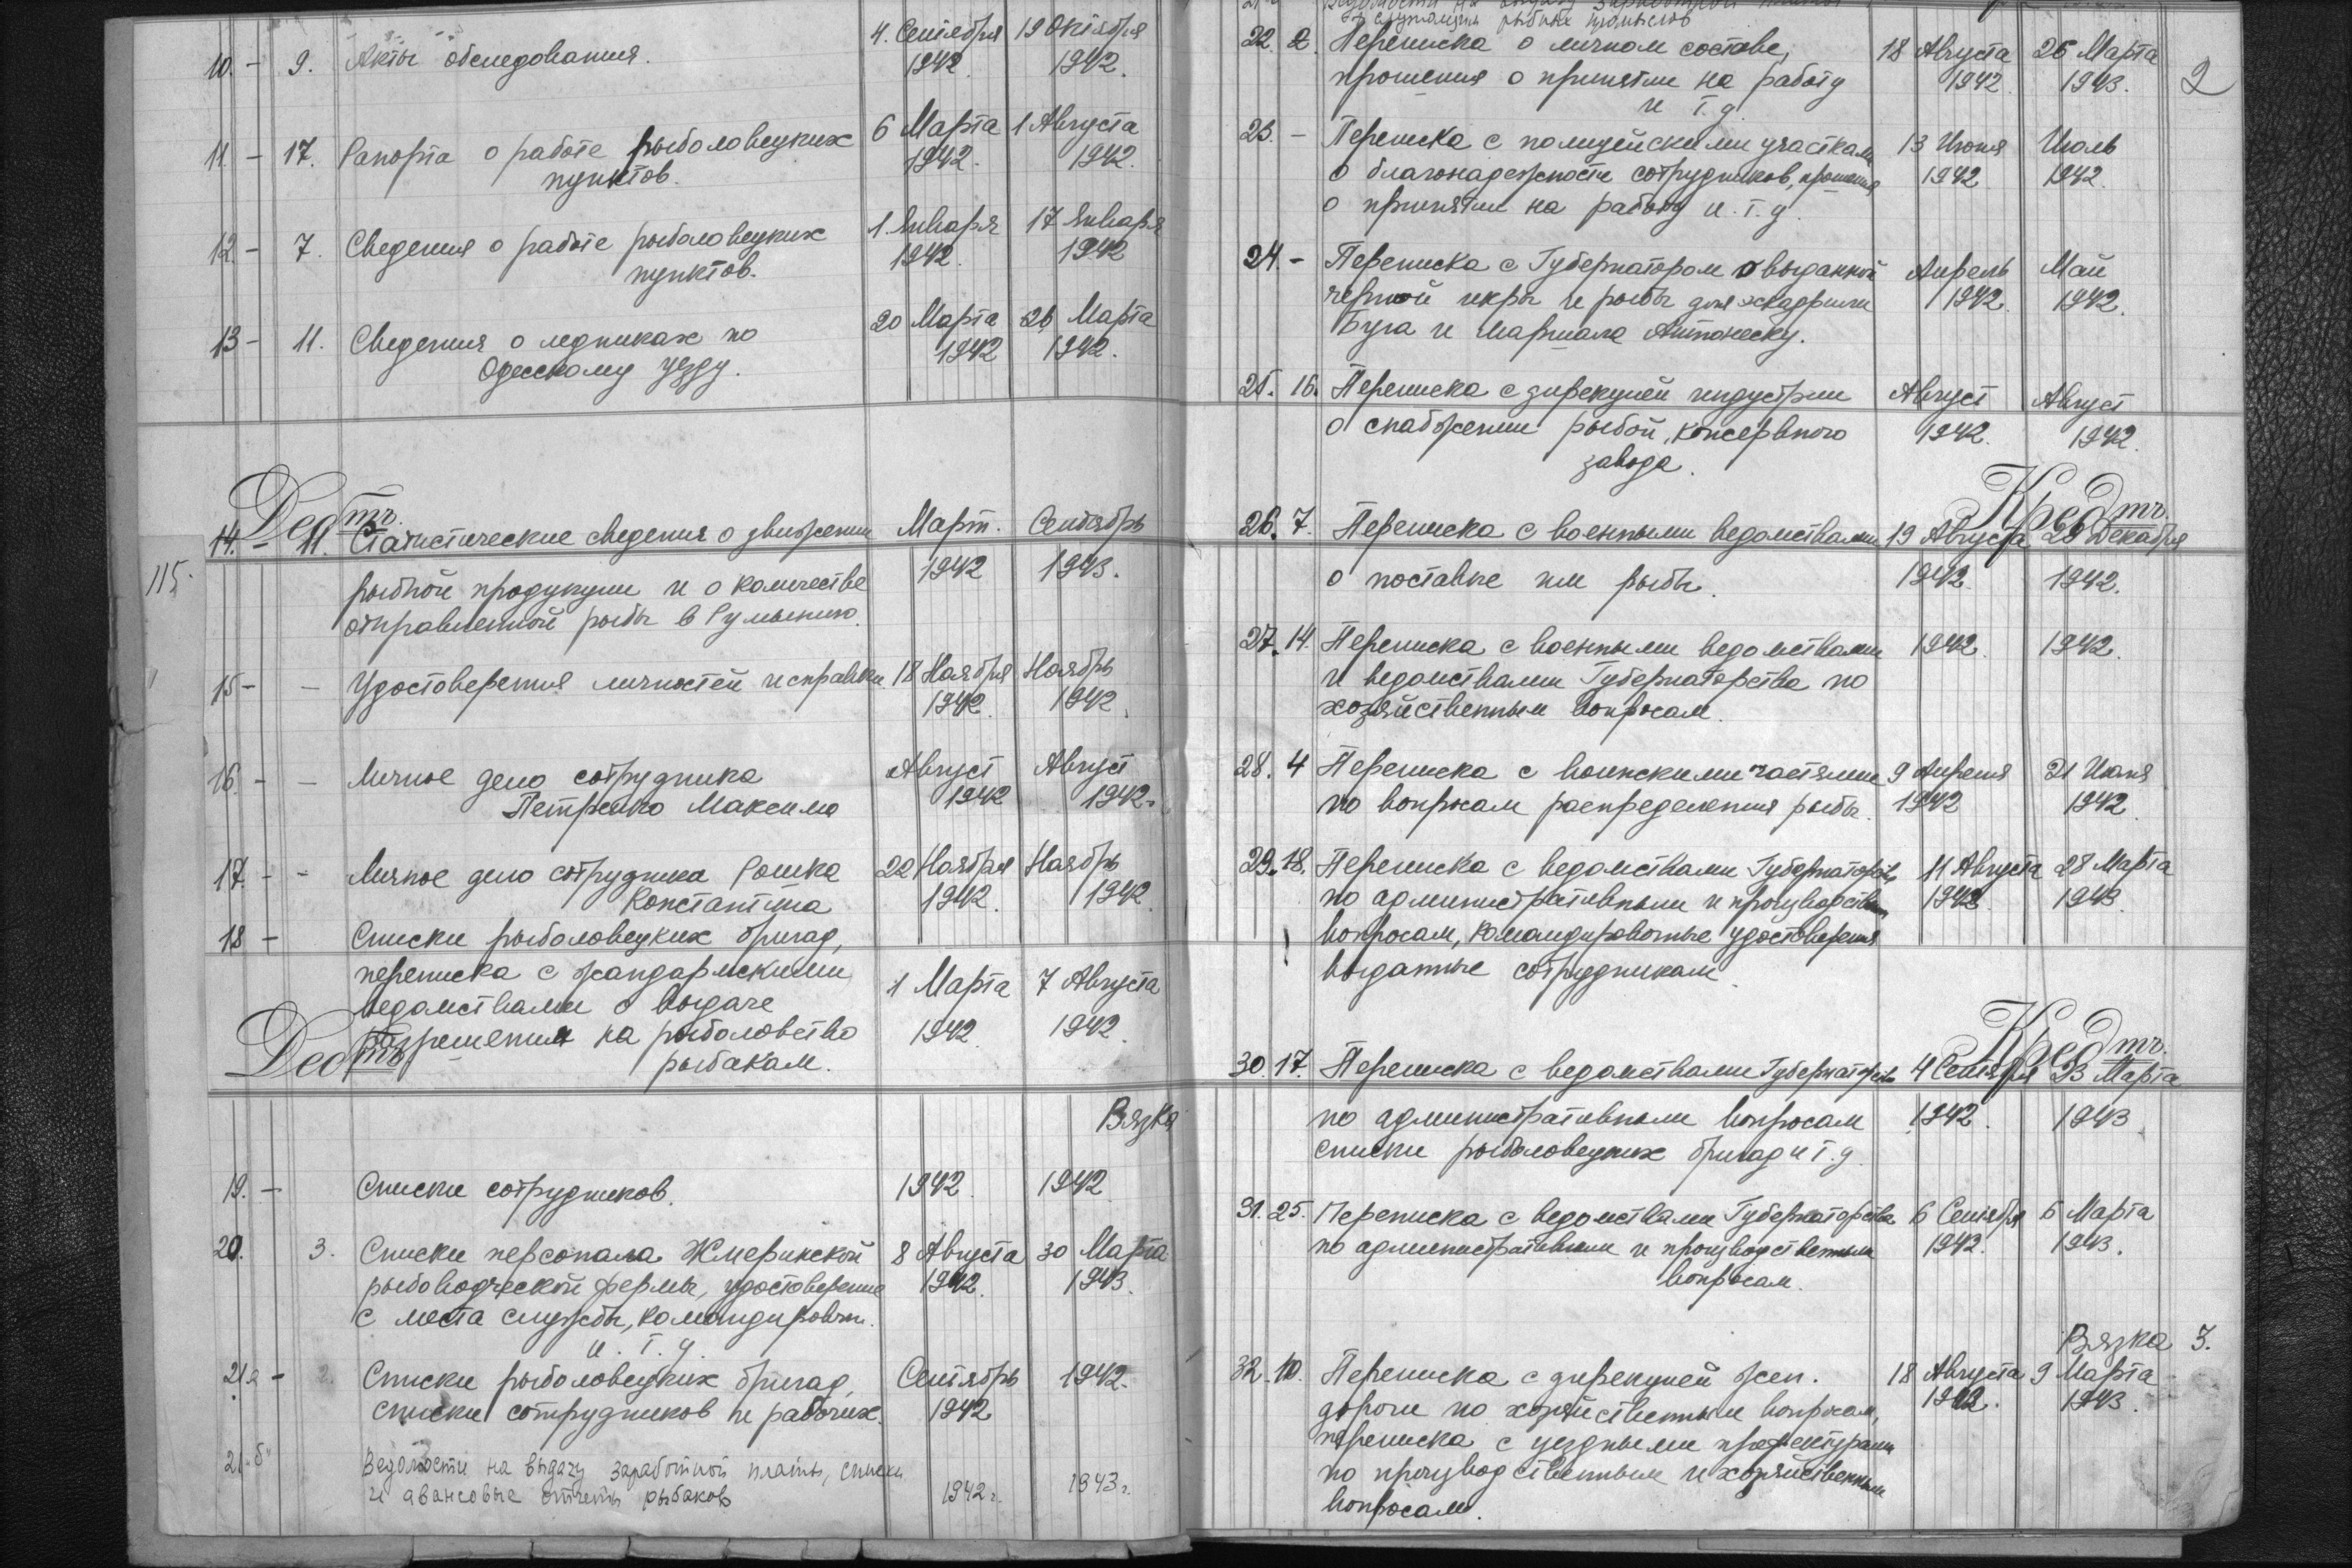 10. - 9. Акты обследования. 4. Сентября 19 Октября
1942. 1942.
11. - 17. Рапорта о работе рыболовецких 6 Марта 1 Августа
пунктов. 1942. 1942.
12 - 7. Сведения о работе рыболовецких 1. Января 17 Января
пунктов. 1942. 1942
13 - 11. Сведения о ледниках по 20 Марта 26 Марта
Одесскому уезду. 1942 1942.
Дебтъ.
14. - 11. Статистические сведения о движении Март. Сентябрь
115. рыбной продукции и о количестве 1942 1943.
отправленной рыбы в Румынию.
15 - - Удостоверения личностей и справки. 18 Ноября Ноябрь
1942. 1942.
16. - - Личное дело сотрудника Август Август
Петренко Максима 1942 1942.
17. - - Личное дело сотрудника Рошка 22 Ноября Ноябрь
Константина 1942. 1942.
18 - Списки рыболовецких бригад,
переписка с жандармскими 1 Марта 7 Августа
ведомствами о выдаче
разрешения на рыболовство 1942. 1942.
Дебтъ. рыбакам.
Вязка
19. - Списки сотрудников. 1942. 1942
20. 3. Списки персонала Жмеринской 8 Августа 30 Марта
рыбоводческой фермы, удостоверение 1942. 1943.
с места службы, командировки.
и. т. д.
21а - 2. Списки рыболовецких бригад, Сентябрь 1942.
списки сотрудников и рабочих. 1942
21 "б" Ведомости на выдачу заработной платы, списки
и авансовые отчеты рыбаков 1942 г. 1943 г.
служащим рыбных промыслов
22. 2. Переписка о личном составе, 18 Августа 26 Марта 2
прошения о принятии на работу 1942. 1943.
и т. д.
23. - Переписка с полицейскими участками 13 Июня Июль
о благонадежности сотрудников, прошения 1942 1942.
о принятии на работу и. т. д.
24. - Переписка с Губернатором о выданной Апрель Май
черной икры и рыбы для эскадрили 1942. 1942.
Буга и Маршала Антонеску.
25. 16. Переписка с дирекцией индустрии Август Август
о снабжении рыбой, консервного 1942. 1942.
завода.
Кредтъ.
26. 7. Переписка с военными ведомствами 19 Августа 28 Декабря
о поставке им рыбы. 1942. 1942.
27. 14. Переписка с военными ведомствами 1942. 1942.
и ведомствами Губернаторства по
хозяйственным вопросам.
28. 4 Переписка с воинскими частями 9 Апреля 21 Июня
по вопросам распределения рыбы. 1942 1942.
29. 18. Переписка с ведомствами Губернаторств 11 Августа 28 Марта
по административным и производствен 1942. 1943.
вопросам, командировочные удостоверения
выданные сотрудникам.
Кредтъ.
30. 17. Переписка с ведомствами Губернаторства 4 Сентября 23 Марта
по административным вопросам 1942. 1943
списки рыболовецких бригад и т. д.
31. 25. Переписка с ведомствами Губернаторства 6 Сентября 6 Марта
по административным и производственным 1942. 1943.
вопросам.
Вязка 3.
32. 10. Переписка с дирекцией жел. 18 Августа 9 Марта
дороги по хозяйственным вопросам, 1942. 1943.
переписка с уездными префектурами
по производственным и хозяйственным
вопросам.